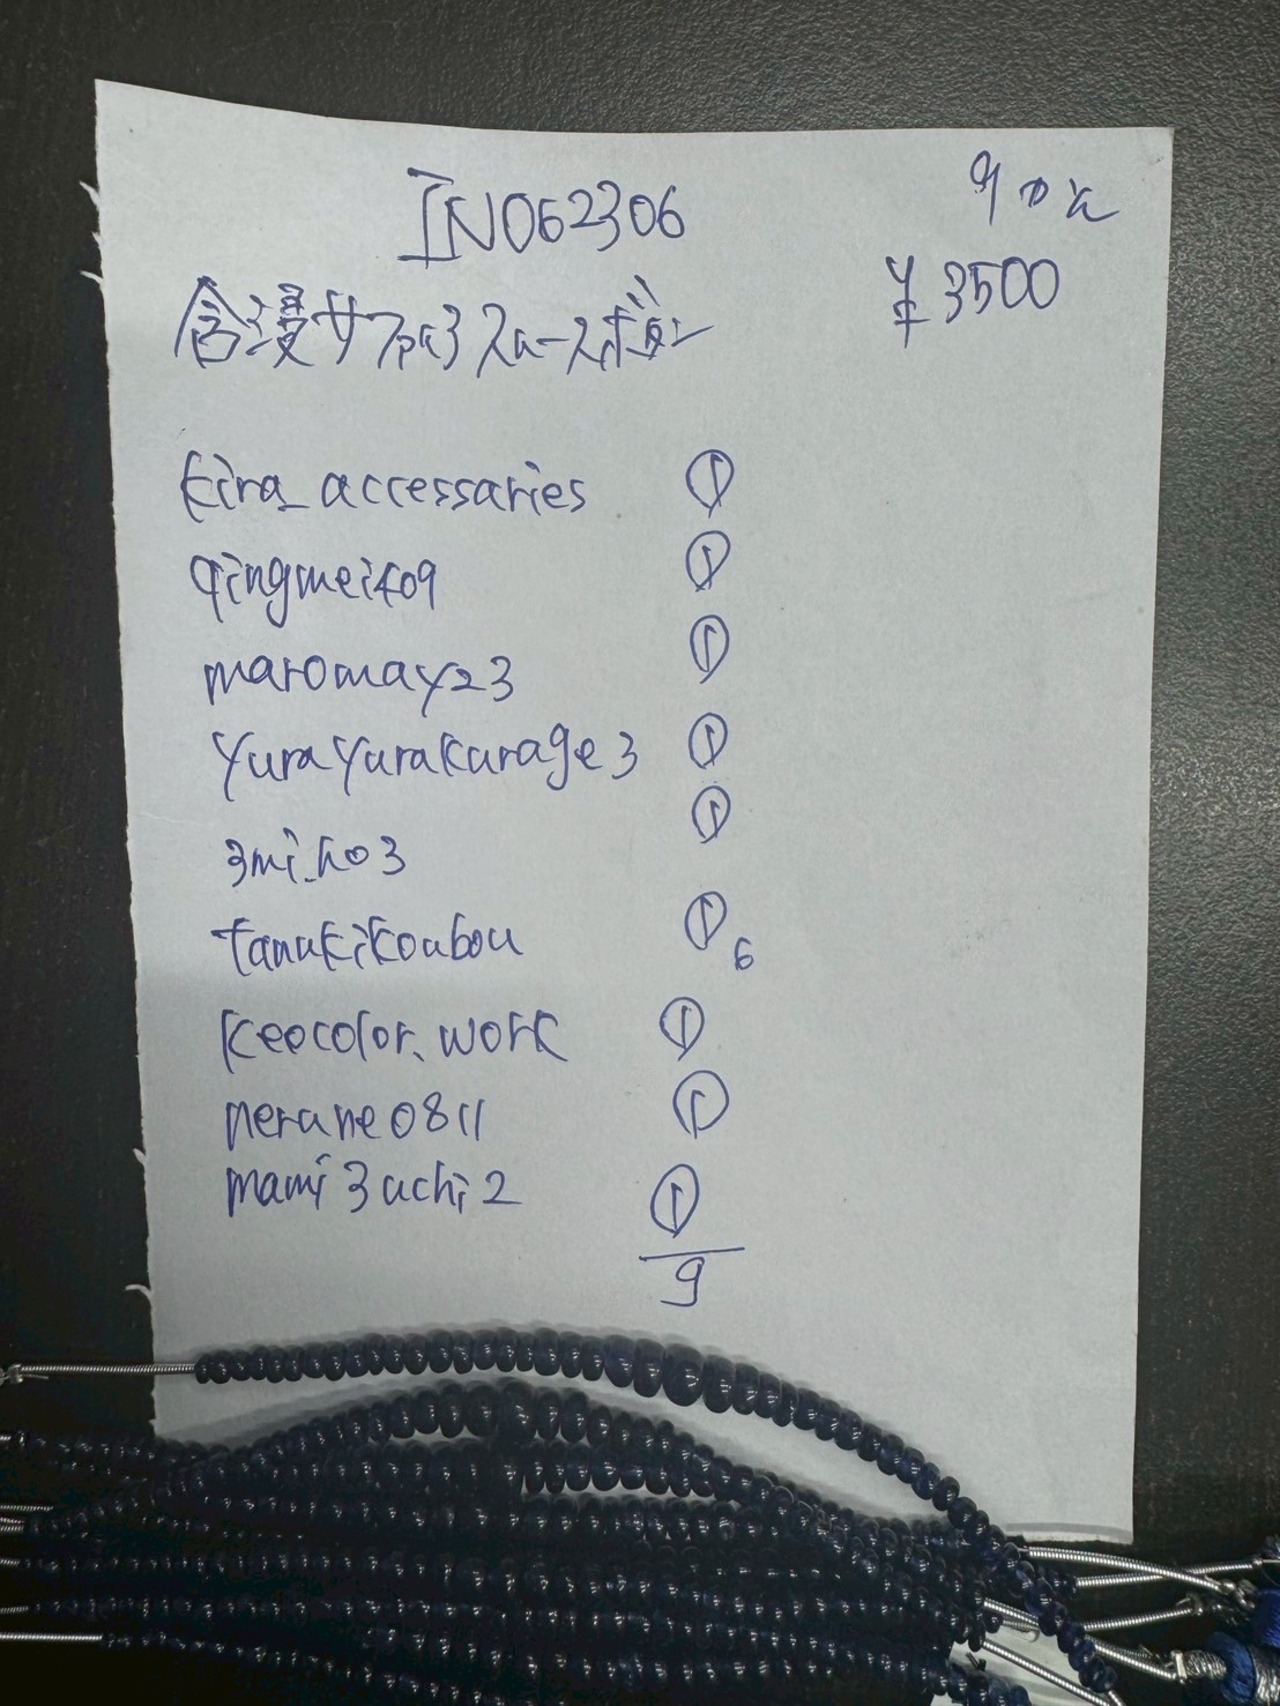 IN062306
9
¥3500
含浸サファイア
kira_accessaries ①
qingmei409 ①
maromay23 ①
yurayurakurage3 ①
3mi_ho3 ①
tanukikoubou ① 6
keocolor.work ①
nerune0811 ①
mami3uchi2 ①
9